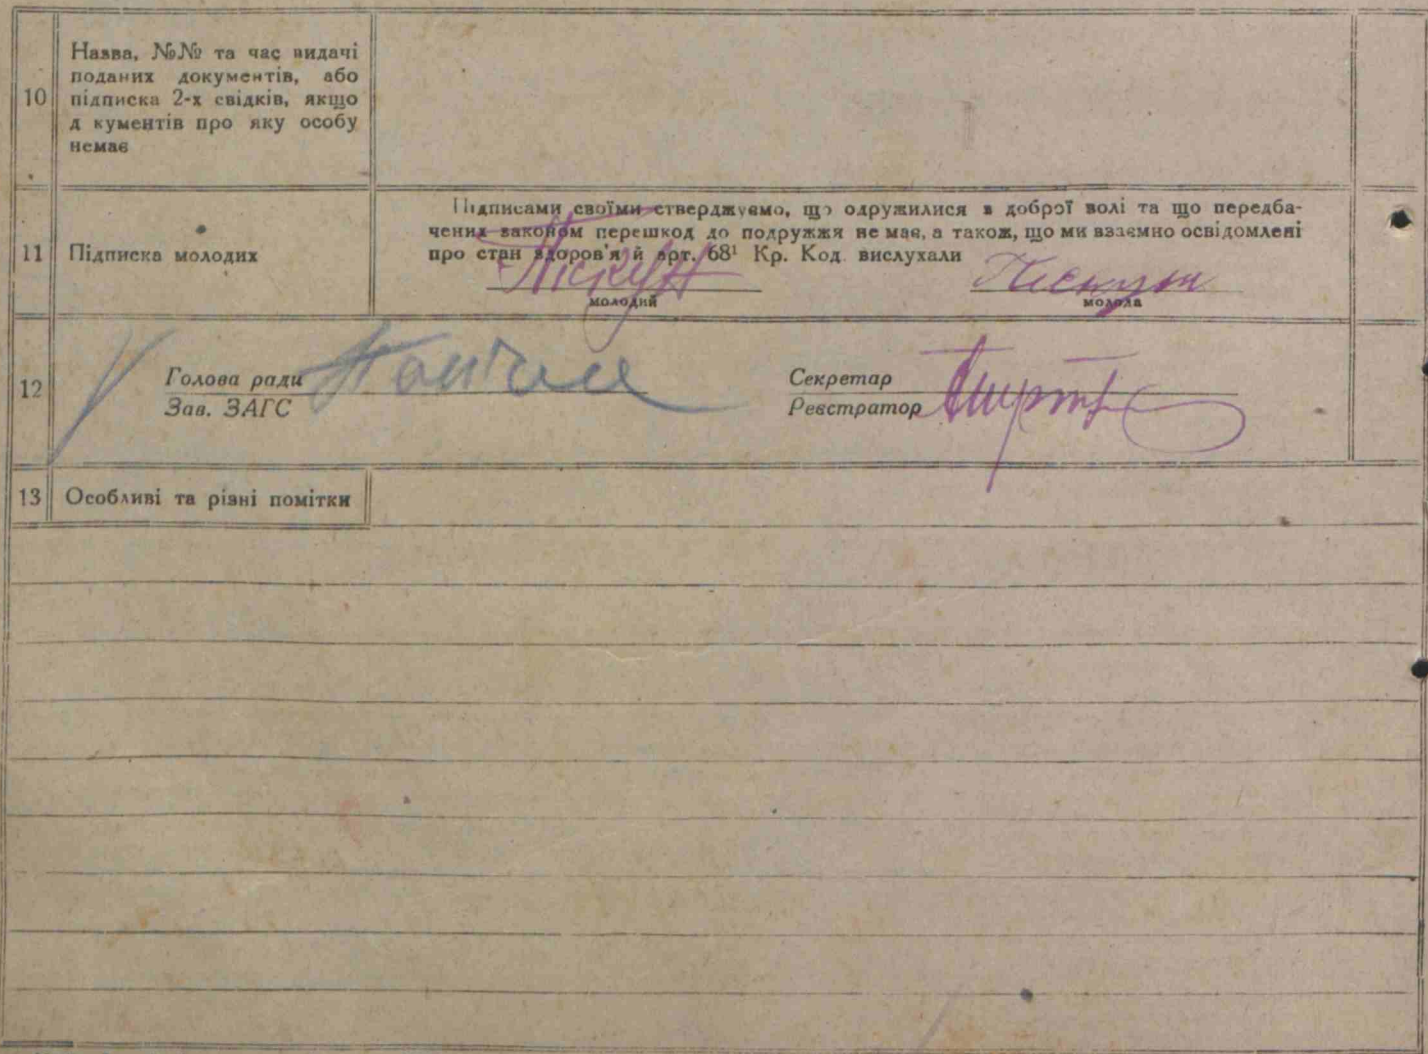 10
Назва, №№ та час видачі
поданих документів, або
підписка 2-х свідків, якщо
д кументів про яку особу
немає
11
Підписка молодих
Підписами своїми стверджуємо, що одружилися з доброї волі та що передба-
чених законом перешкод до подружжя не має, а також, що ми взаємно освідомлені
про стан здоров'я й арт. 68¹ Кр. Код. вислухали
Піскун
молодий
Пискун
молода
12
Голова ради
Зав. ЗАГС
Секретар
Реєстратор
13
Особливі та різні помітки